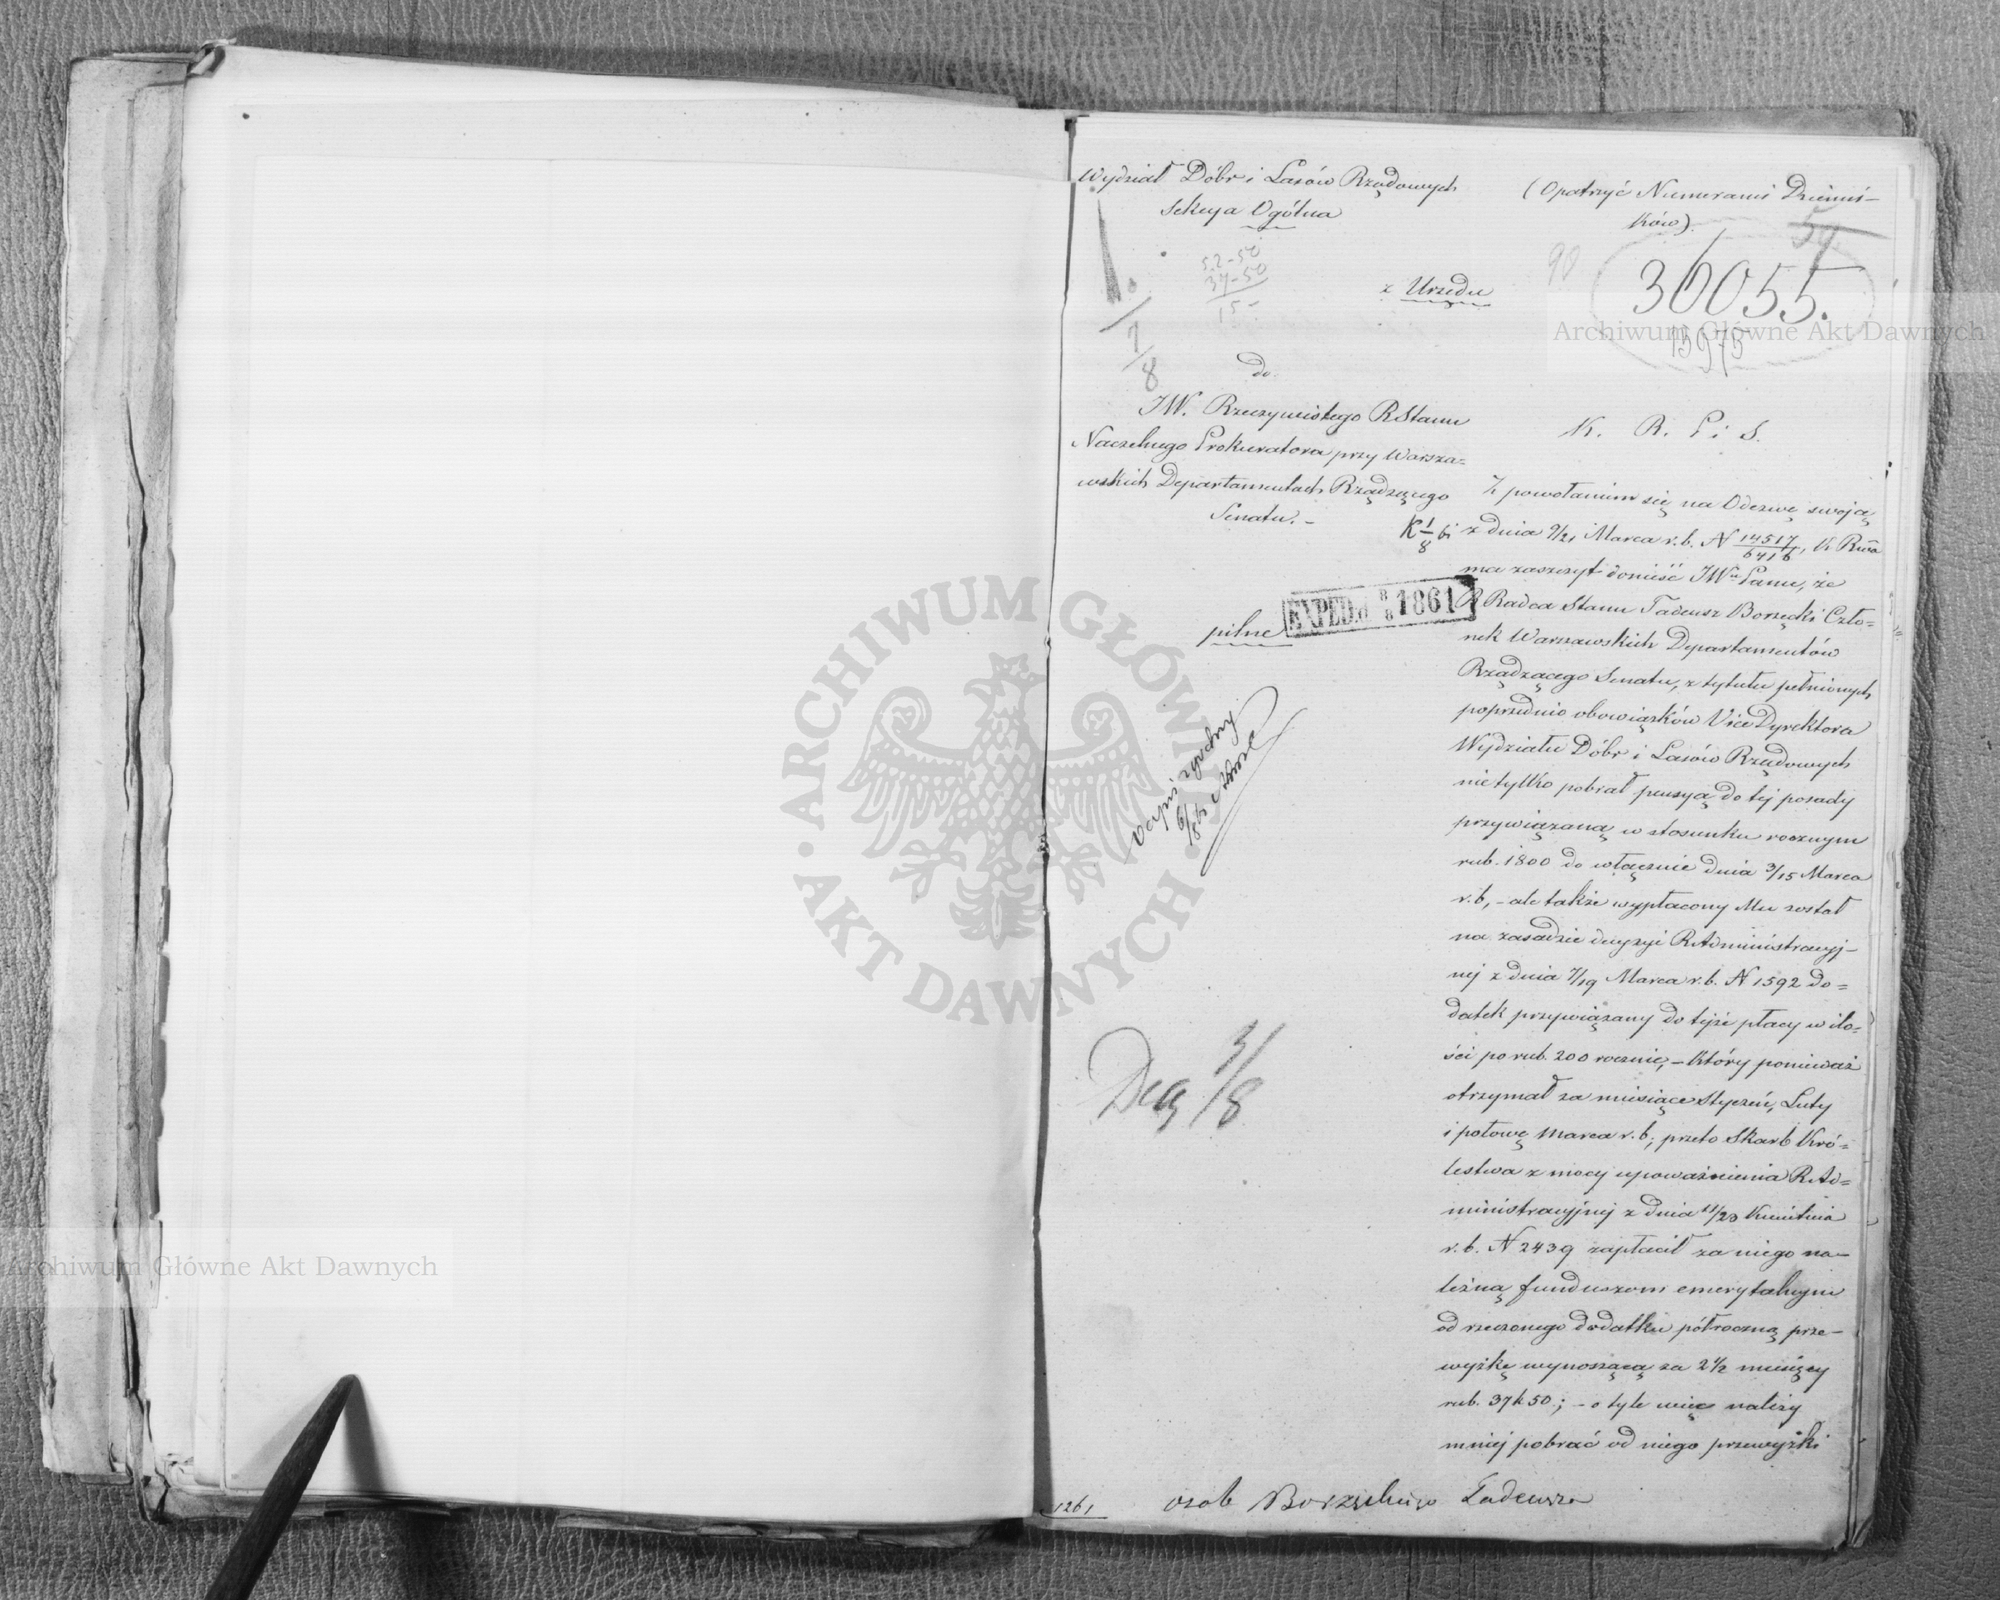 Wydział Dóbr i Lasów Rządowych
Sekcya Ogólna
(Opatrzyć Numerami Dzienni-
ków).
52-50
37-50
15-
z Urzędu
90
59
36055.
15975
1/8
do
JW. Rzeczywistego RStanu
Naczelnego Prokuratora przy Warsza=
wskich Departamentach Rządzącego
Senatu. -
pilne
EXPED. d 8/8 1861
6/8 61
Dec 3/8
K. R. P i S.
Z powołaniem się na Odezwę swoją
z dnia 9/21 Marca r.b. N 14517/6416, K Rwa
ma zaszczyt donieść JWu Panu, że
R Radca Stanu Tadeusz Borzęcki Czło=
nek Warszawskich Departamentów
Rządzącego Senatu, z tytułu pełnionych
poprzednio obowiązków Vice Dyrektora
Wydziału Dóbr i Lasów Rządowych
nie tylko pobrał pensyą do tej posady
przywiązaną w stosunku rocznym
rub. 1800 do włącznie dnia 3/15 Marca
r.b, - ale także wypłacony Mu został
na zasadzie decyzyi RAdministracyj-
nej z dnia 7/19 Marca r.b. N 1592 do=
datek przywiązany do tejże płacy w ilo=
ści po rub. 200 rocznie, - który ponieważ
otrzymał za miesiące Styczeń, Luty
i połowę Marca r.b; przeto Skarb Kró=
lestwa z mocy upoważnienia RAd=
ministracyjnej z dnia 11/23 Kwietnia
r.b. N 2439 zapłacił za niego na-
leżną funduszom emerytalnym
od rzeczonego dodatku półroczną prze-
wyżkę wynoszącą za 2 1/2 miesięcy
rub. 37 k 50; - o tyle więc należy
mniej pobrać od niego przewyżki
1261
osob Borzęckiego Tadeusza
ARCHIWUM GŁÓWNE · AKT DAWNYCH ·
Archiwum Główne Akt Dawnych
Archiwum Główne Akt Dawnych